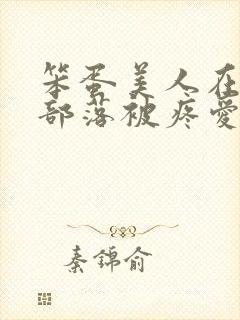 笨蛋美人在
部落被疼愛
秦錦俞